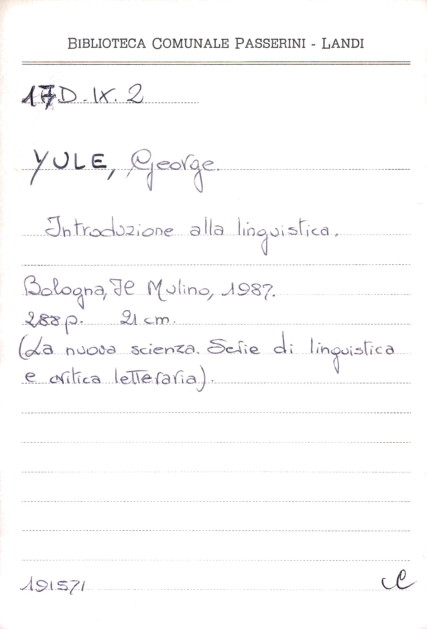 BIBLIOTECA COMUNALE PASSERINI - LANDI
17D.IX.2
YULE, George.
Introduzione alla linguistica.
Bologna, Il Mulino, 1987.
288 p. 21 cm.
(La nuova scienza. Serie di linguistica
e critica letteraria).
191571